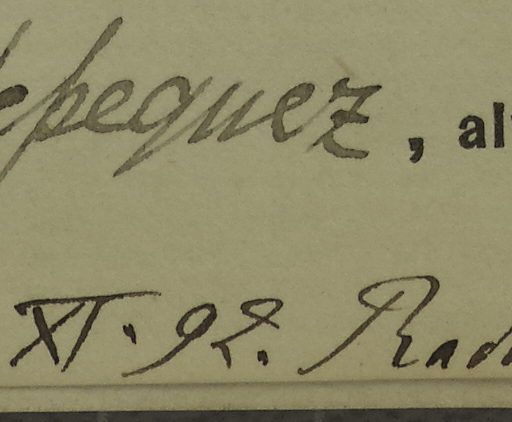 epequez, al
XI. 92. Rad